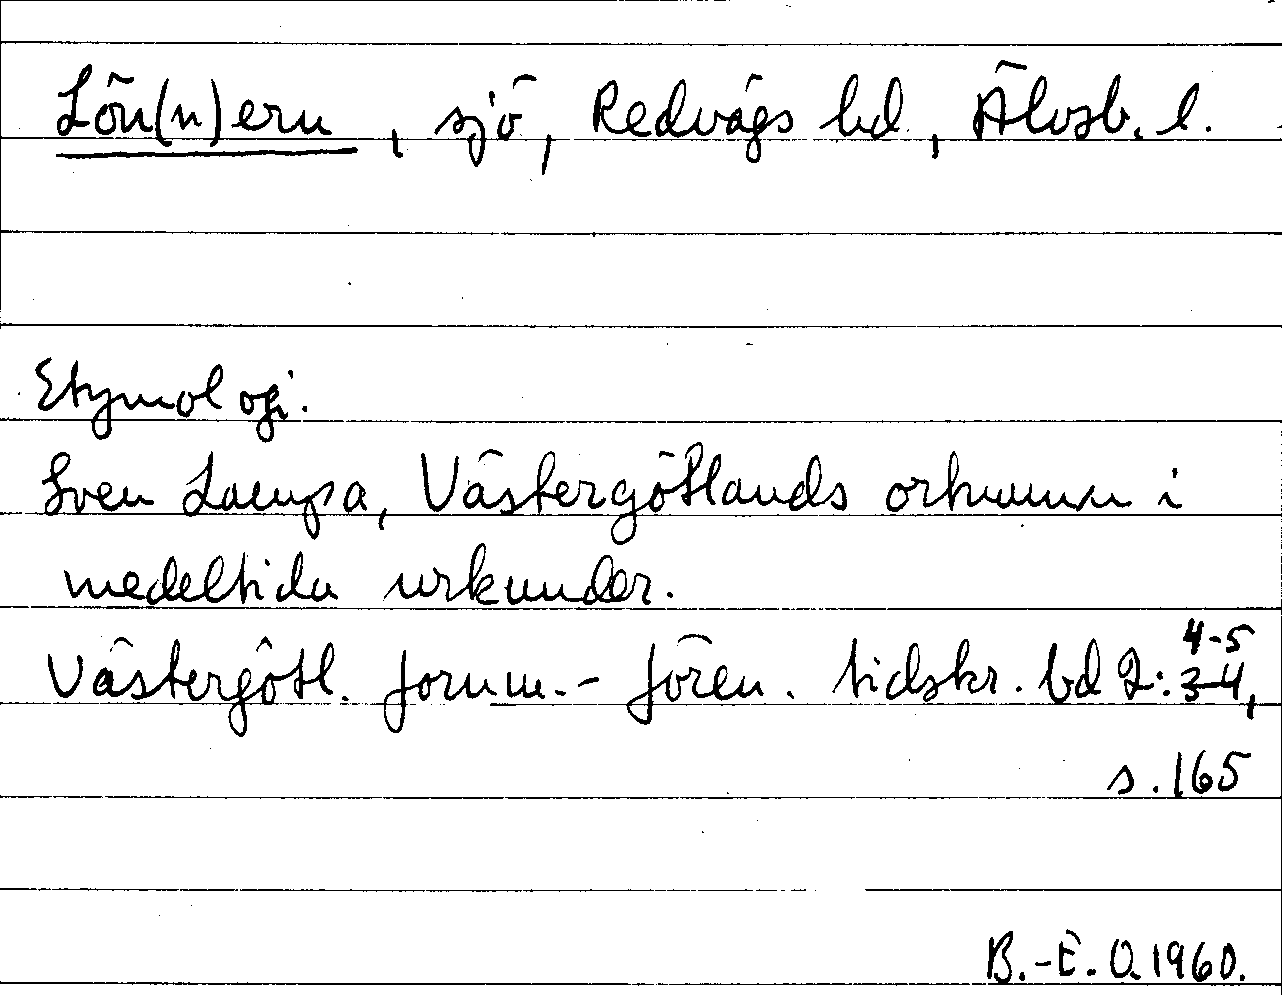 Lön(n)ern, sjö, Redvägs hd, Älvsb. l.
Etymologi.
Sven Lampa, Västergötlands ortnamn i
medeltida urkunder.
Västergötl. fornm.- fören. tidskr. bd 2: 4-5
3-4,
s. 165
B.-E. O. 1960.